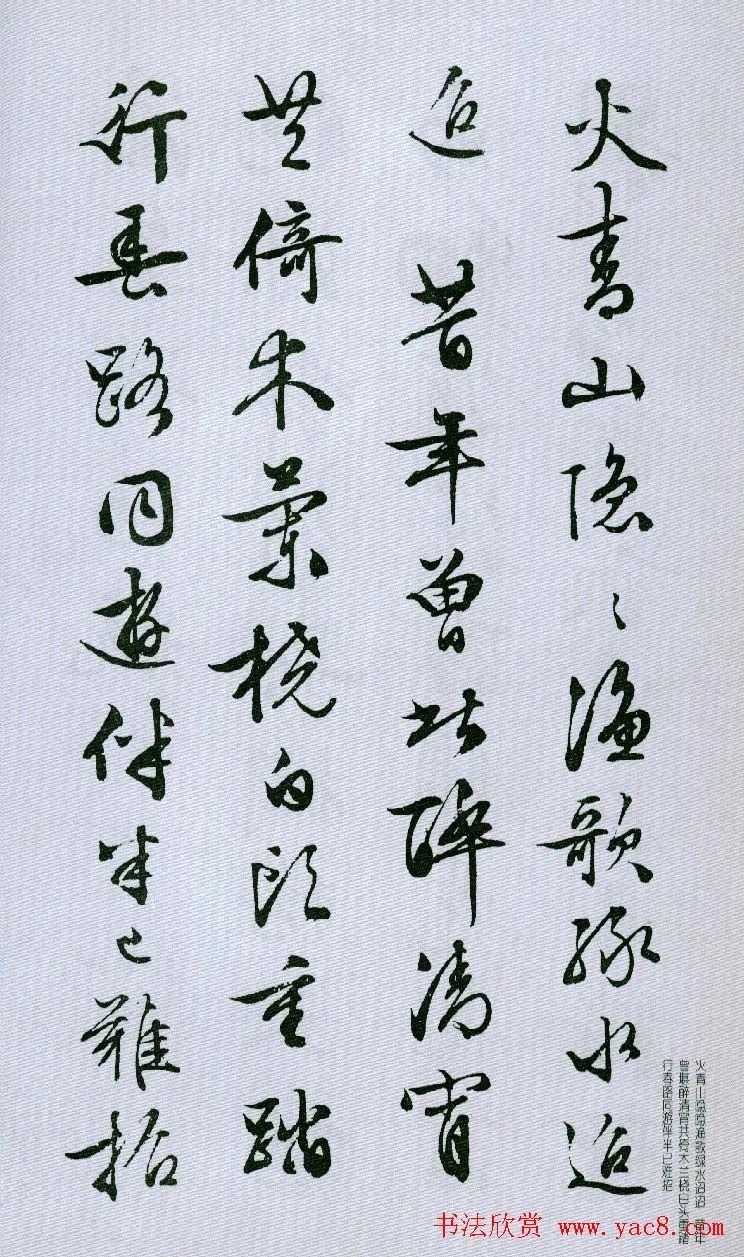 火青山隐〻漁歌綠水迢
迢 昔年曾此醉清宵
共倚木蘭橈白頭重踏
行春路同遊伴半已難招
火青山隐隐渔歌绿水迢迢 昔年
曾堪醉清宵共倚木兰桡白头重踏
行春路同游伴半已难招
书法欣赏 www.yac8.com